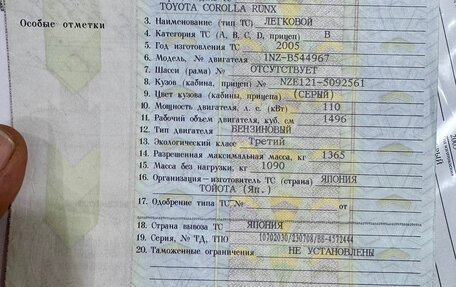 TOYOTA COROLLA RUNX
Особые отметки
3. Наименование (тип ТС) ЛЕГКОВОЙ
4. Категория ТС (A, B, C, D, прицеп) B
5. Год изготовления ТС 2005
6. Модель, № двигателя 1NZ-B544967
7. Шасси (рама) № ОТСУТСТВУЕТ
8. Кузов (кабина, прицеп) № NZE121-5092561
9. Цвет кузова (кабины, прицепа) (СЕРЫЙ)
10. Мощность двигателя, л. с. (кВт) 110
11. Рабочий объем двигателя, куб. см 1496
12. Тип двигателя БЕНЗИНОВЫЙ
13. Экологический класс Третий
14. Разрешенная максимальная масса, кг 1365
15. Масса без нагрузки, кг 1090
16. Организация—изготовитель ТС (страна) ЯПОНИЯ
ТОЙОТА (Яп.)
17. Одобрение типа ТС № от
18. Страна вывоза ТС ЯПОНИЯ
19. Серия, № ТД, ТПО 10702030/230708/ВВ-4572444
20. Таможенные ограничения НЕ УСТАНОВЛЕНЫ